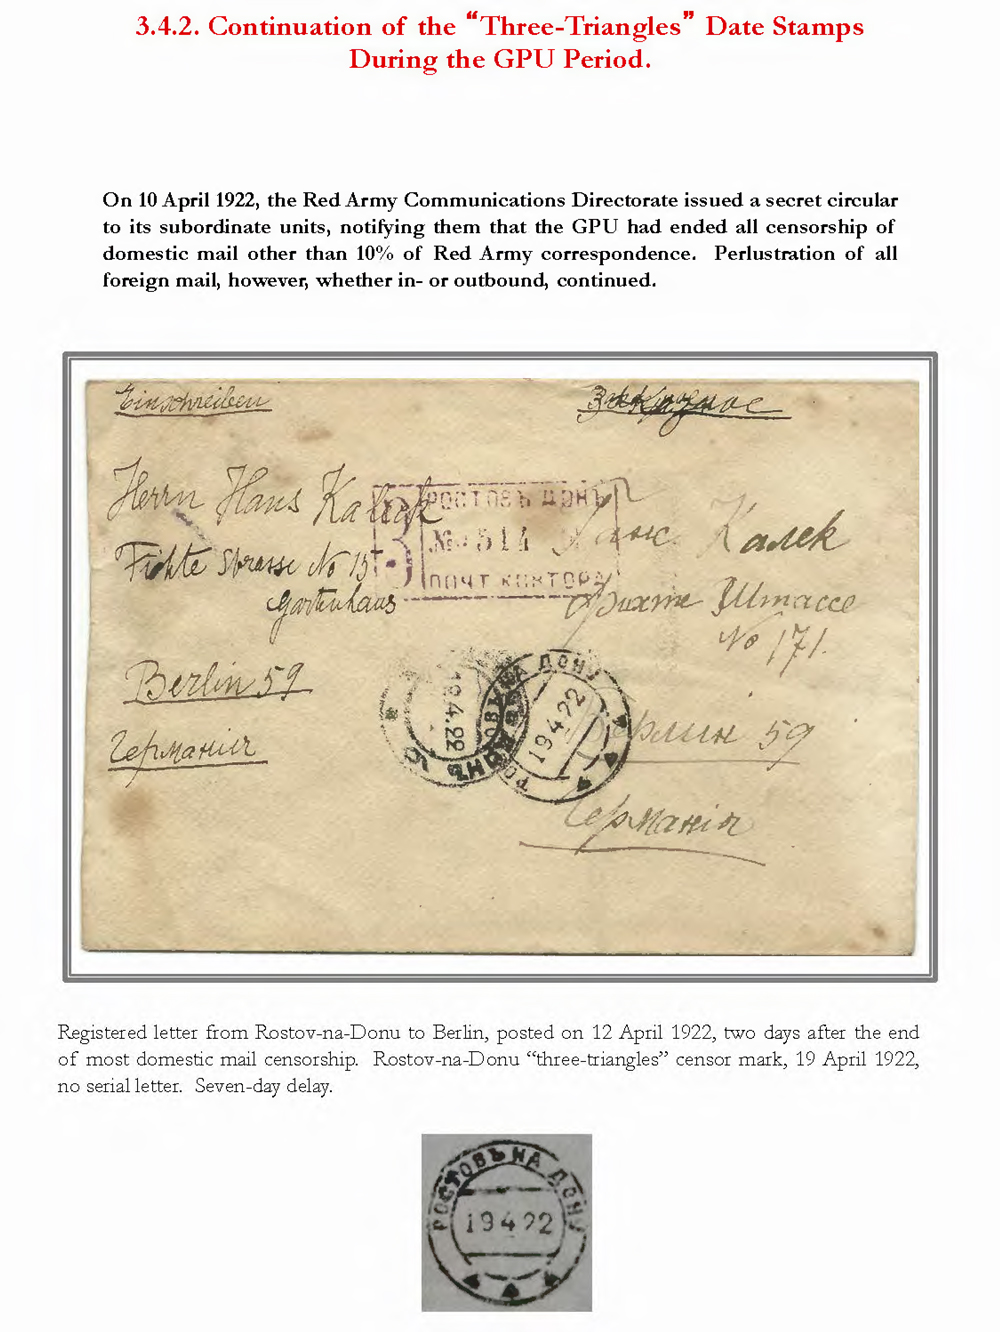 3.4.2. Continuation of the “Three-Triangles” Date Stamps
During the GPU Period.
On 10 April 1922, the Red Army Communications Directorate issued a secret circular
to its subordinate units, notifying them that the GPU had ended all censorship of
domestic mail other than 10% of Red Army correspondence. Perlustration of all
foreign mail, however, whether in- or outbound, continued.
Einschreiben
Заказное
Herrn Hans Kallek
Fichte Strasse No 15
Gartenhaus
Berlin 59
Германія
З
РОСТОВЪ ДОНЪ
№ 514
ПОЧТ КОНТОРА
Ханс Калек
Фихте Штассе
No 171.
Берлин 59
Германія
12.4.22
РОСТОВЪ НА ДОНУ
19 4 22
Registered letter from Rostov-na-Donu to Berlin, posted on 12 April 1922, two days after the end
of most domestic mail censorship. Rostov-na-Donu “three-triangles” censor mark, 19 April 1922,
no serial letter. Seven-day delay.
РОСТОВЪ НА ДОНУ
19 4 22